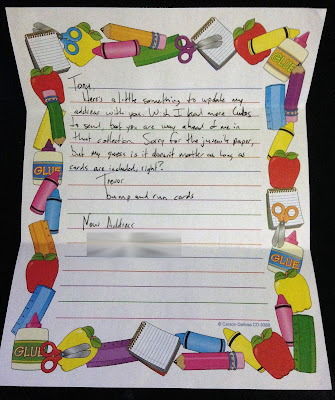 Tony
Here's a little something to update my
address with you. Wish I had more Cubs
to send, but you are way ahead of me in
that collection. Sorry for the juvenile paper,
but my guess is it doesn't matter as long as
cards are included, right?
Trevor
bump and run cards
New Address
GLUE
GLUE
GLUE
GLUE
© Carson-Dellosa CD-9388